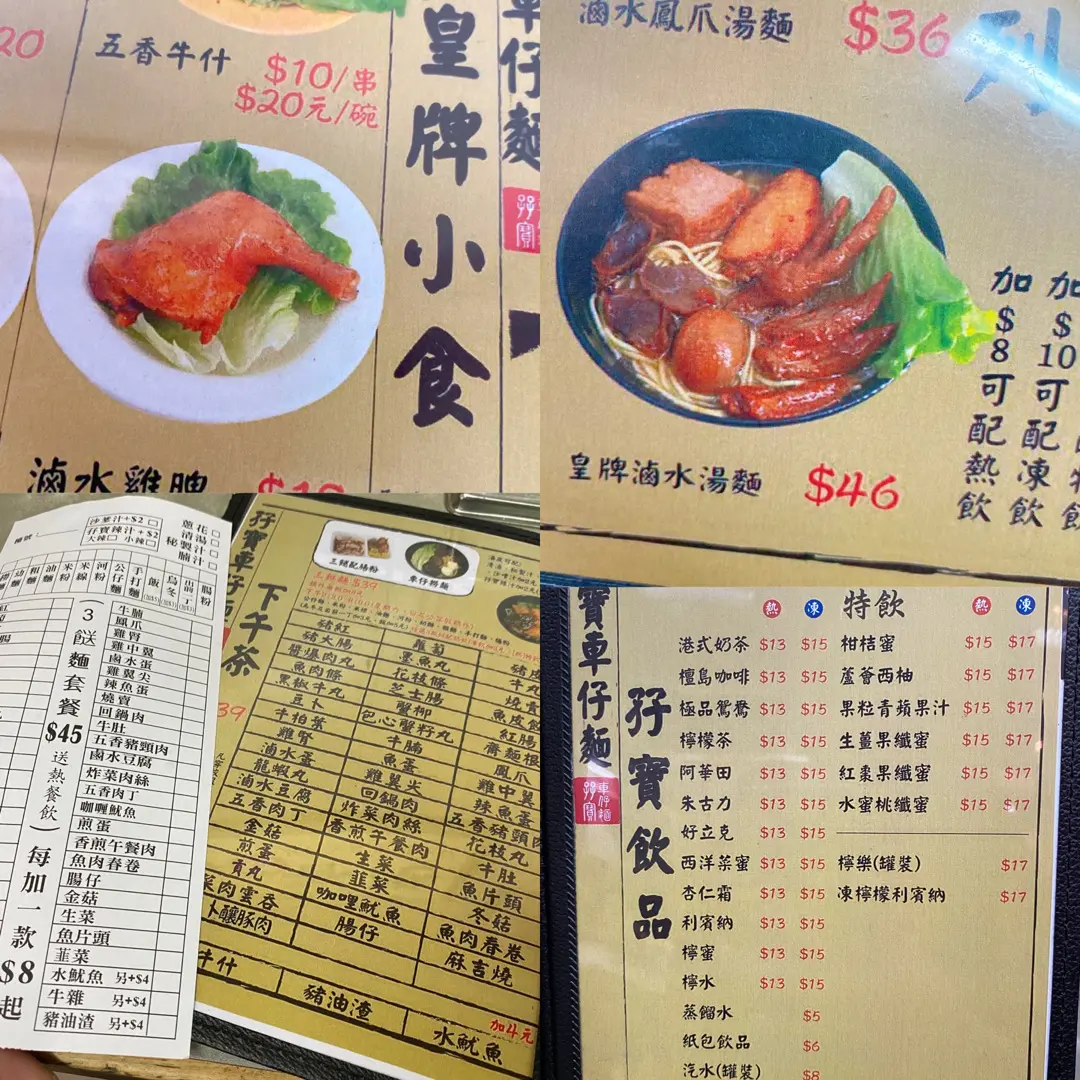 20
五香牛什
$10/串
$20元/碗
皇牌小食
車仔麵
孖寶
滷水雞脾
滷水鳳爪湯麵 $36
列
皇牌滷水湯麵 $46
加$8可配熱飲
加$10可配凍飲
沙爹汁+$2
孖寶辣汁+$2
大辣 小辣
蔥花
清湯
秘製汁
腩汁
粗麵
油麵
米粉
米線
河粉
公仔麵
手打麵
飯
烏冬
出前一丁
腸粉
3餸麵套餐
$45
送熱餐飲)
每加一款
$8起
牛腩
鳳爪
雞腎
雞中翼
鹵水蛋
雞翼尖
辣魚蛋
燒賣
回鍋肉
牛肚
五香豬頸肉
鹵水豆腐
炸菜肉絲
五香肉丁
咖喱魷魚
煎蛋
香煎午餐肉
魚肉春卷
腸仔
金菇
生菜
魚片頭
韮菜
水魷魚 另+$4
牛雜 另+$4
豬油渣 另+$4
孖寶車仔麵
下午茶
三餸配腸粉
車仔撈麵
三餸麵 $39
豬紅
豬大腸
醬爆肉丸
魚肉條
黑椒牛丸
豆卜
牛柏葉
雞腎
滷水蛋
龍蝦丸
滷水豆腐
五香肉丁
金菇
煎蛋
貢丸
菜肉雲吞
卜釀豚肉
蘿蔔
墨魚丸
花枝條
芝士腸
蟹柳
包心蟹籽丸
牛腩
魚蛋
雞翼尖
回鍋肉
炸菜肉絲
香煎午餐肉
生菜
韮菜
咖喱魷魚
腸仔
豬皮
牛丸
燒賣
魚皮餃
紅腸
齋麵根
鳳爪
雞中翼
辣魚蛋
五香豬頸肉
花枝丸
牛肚
魚片頭
冬菇
魚肉春卷
麻吉燒
牛什
豬油渣
水魷魚
加4元
寶車仔麵
孖寶
車仔麵
孖寶飲品
熱 凍
港式奶茶 $13 $15
檀島咖啡 $13 $15
極品鴛鴦 $13 $15
檸檬茶 $13 $15
阿華田 $13 $15
朱古力 $13 $15
好立克 $13 $15
西洋菜蜜 $13 $15
杏仁霜 $13 $15
利賓納 $13 $15
檸蜜 $13 $15
檸水 $13 $15
蒸餾水 $5
紙包飲品 $6
汽水(罐裝) $8
特飲 熱 凍
柑桔蜜 $15 $17
蘆薈西柚 $15 $17
果粒青蘋果汁 $15 $17
生薑果纖蜜 $15 $17
紅棗果纖蜜 $15 $17
水蜜桃纖蜜 $15 $17
檸樂(罐裝) $17
凍檸檬利賓納 $17